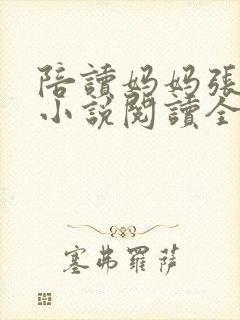 陪讀媽媽張
小說閱讀全
塞弗羅薩